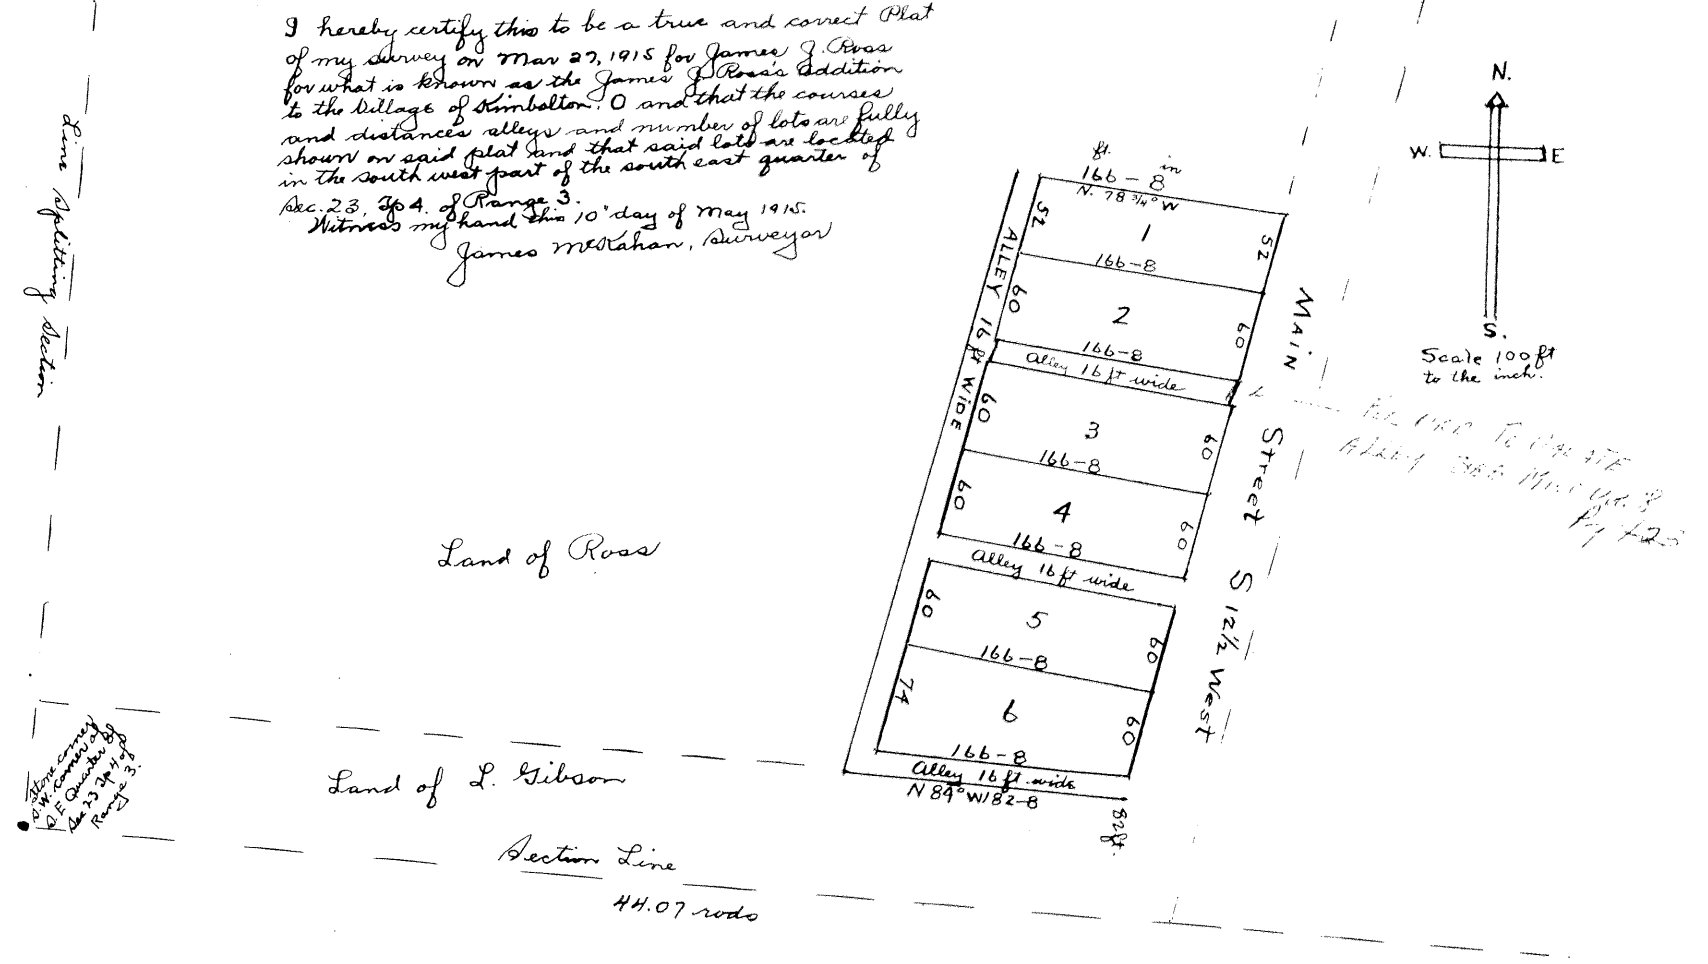 I hereby certify this to be a true and correct Plat
of my survey on Mar 27, 1915 for James J. Ross
for what is known as the James J. Ross's addition
to the Village of Kimbolton, O and that the courses
and distances alleys and number of lots are fully
shown on said plat and that said lots are located
in the south west part of the south east quarter of
Sec. 23, Tp 4. of Range 3.
Witness my hand this 10" day of May 1915.
James McKahan, Surveyor
Line Splitting Section
N.
W.
E
S.
Scale 100 ft
to the inch.
ft. in
166-8
N. 78 3/4° W
52
1
52
166-8
60
2
60
166-8
Alley 16 ft wide
ALLEY 16 ft WIDE
60
3
60
166-8
60
4
60
166-8
Alley 16 ft wide
60
5
60
166-8
74
6
60
166-8
Alley 16 ft wide
N 84° W 182-8
82 ft.
MAIN Street S 12 1/2 West
To Vacate
Alley See
Pg
Land of Ross
Land of L. Gibson
Stone corner
S.W. Corner of
S.E Quarter of
Sec 23 Tp 4 of
Range 3.
Section Line
44.07 rods